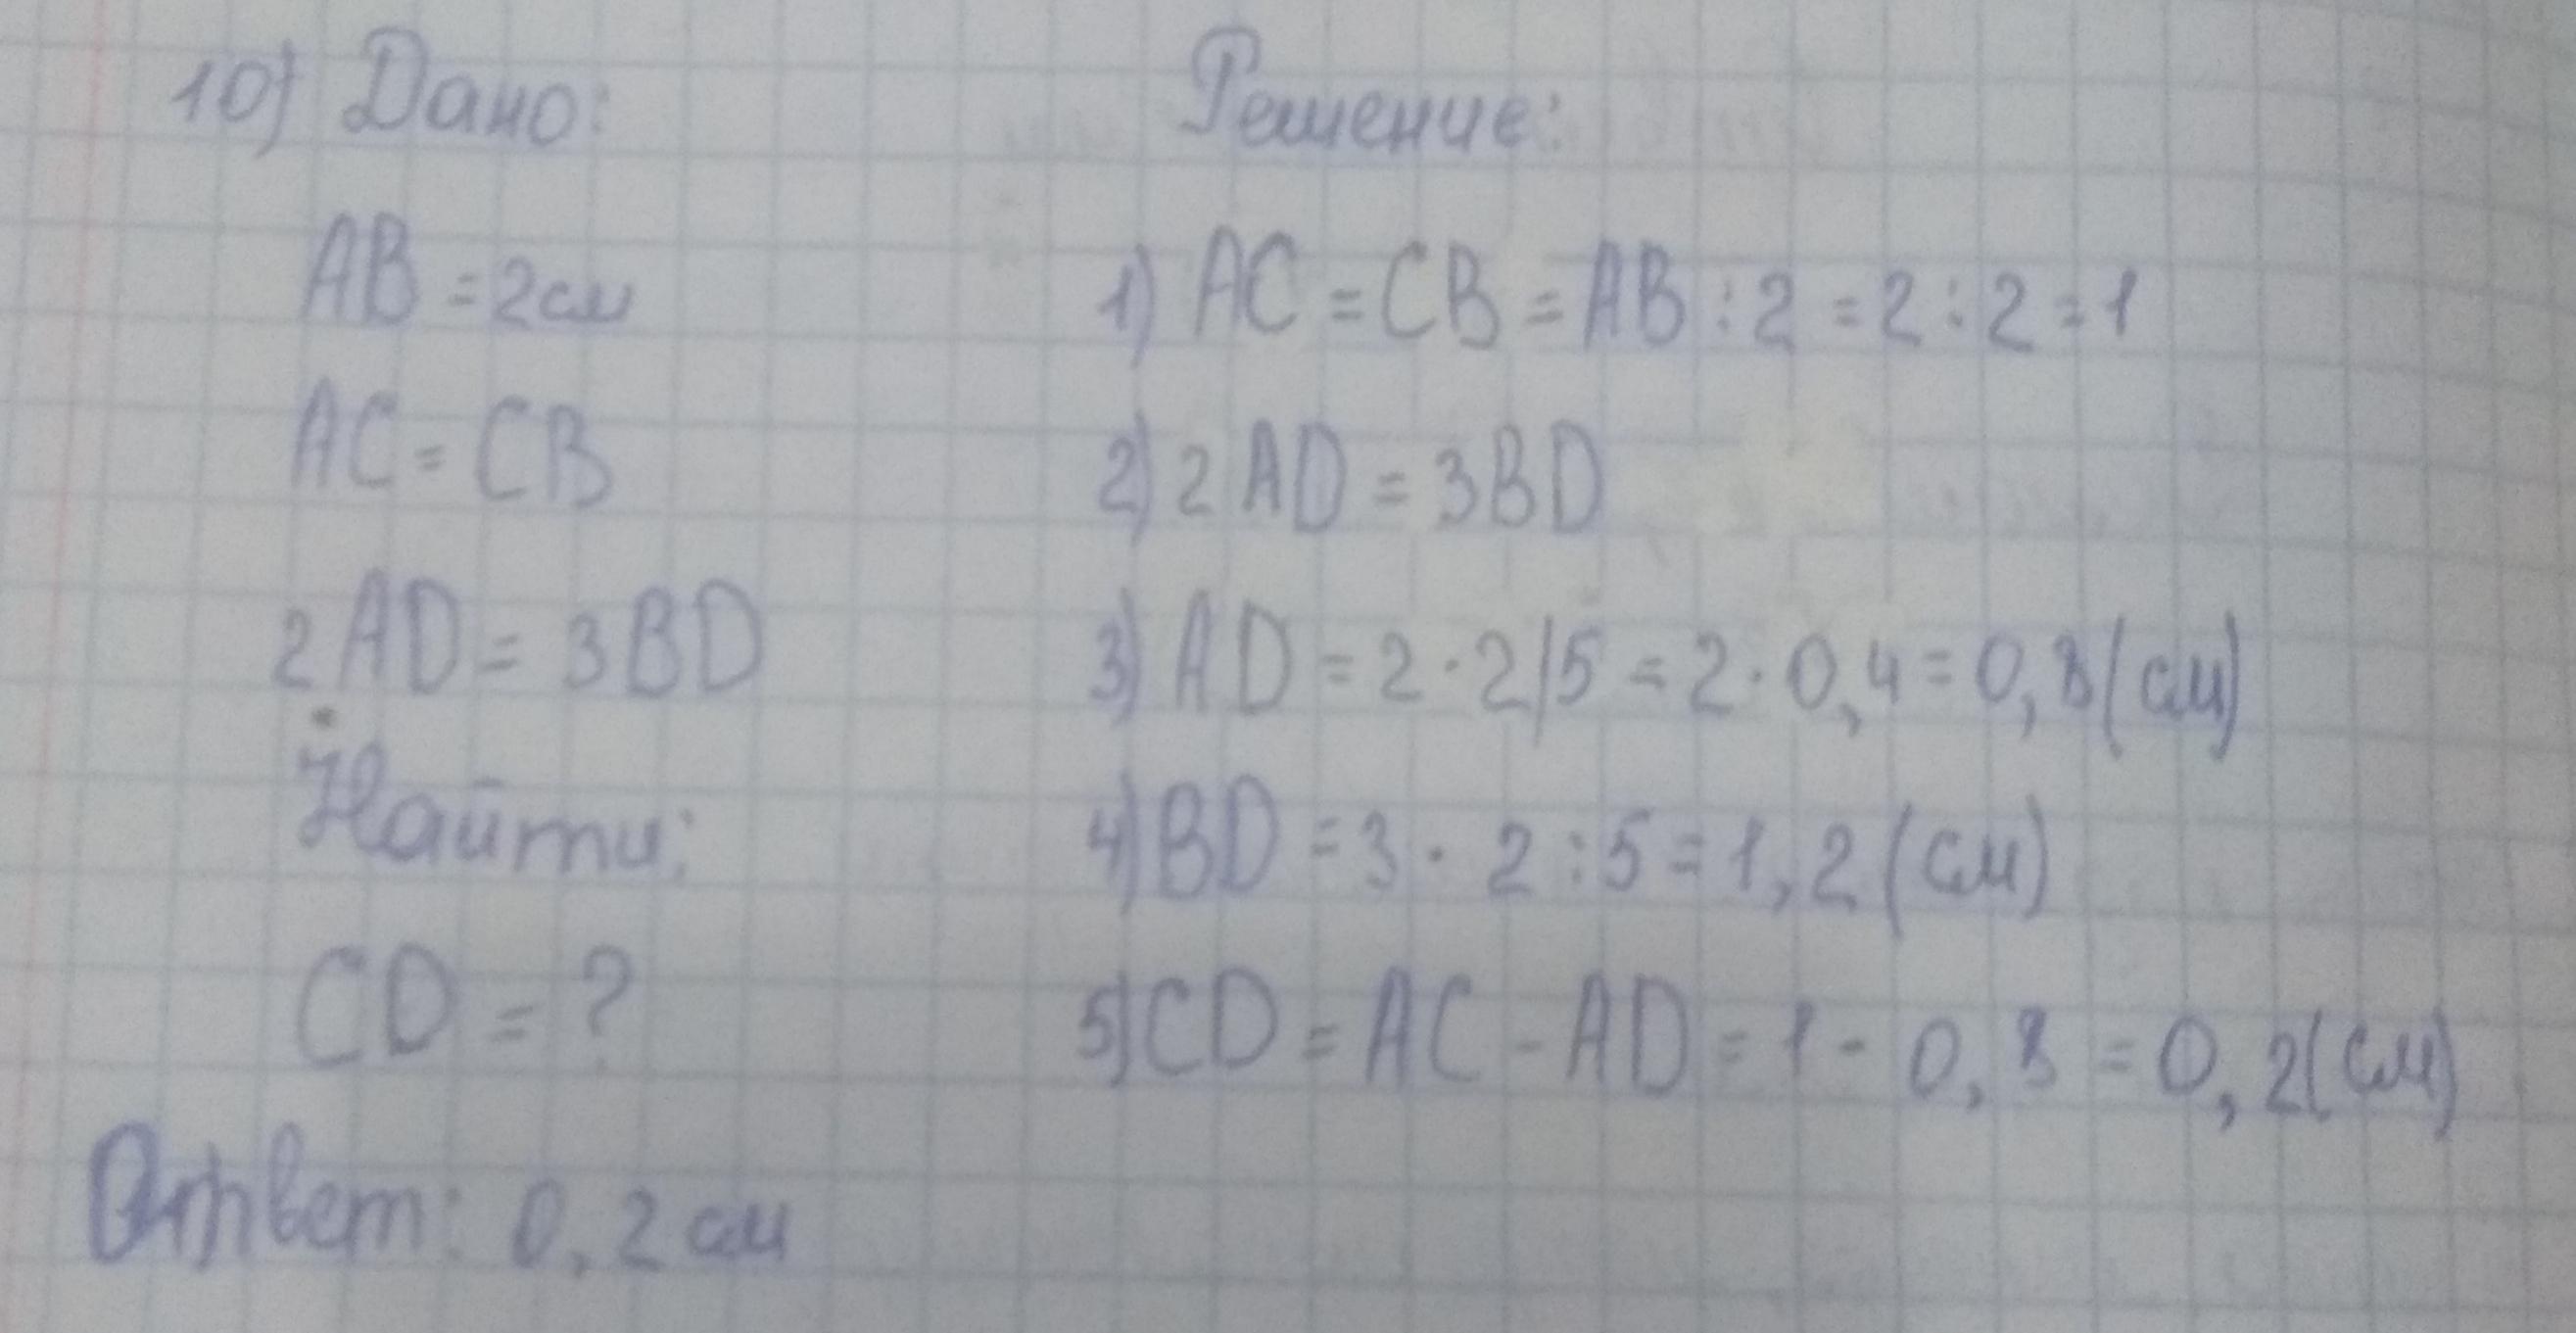 10) Дано:
AB = 2см
AC = CB
2AD = 3BD
Найти:
CD = ?
Решение:
1) AC = CB = AB : 2 = 2 : 2 = 1
2) 2AD = 3BD
3) AD = 2 · 2/5 = 2 · 0,4 = 0,8 (см)
4) BD = 3 · 2 : 5 = 1,2 (см)
5) CD = AC - AD = 1 - 0,8 = 0,2 (см)
Ответ: 0,2 см